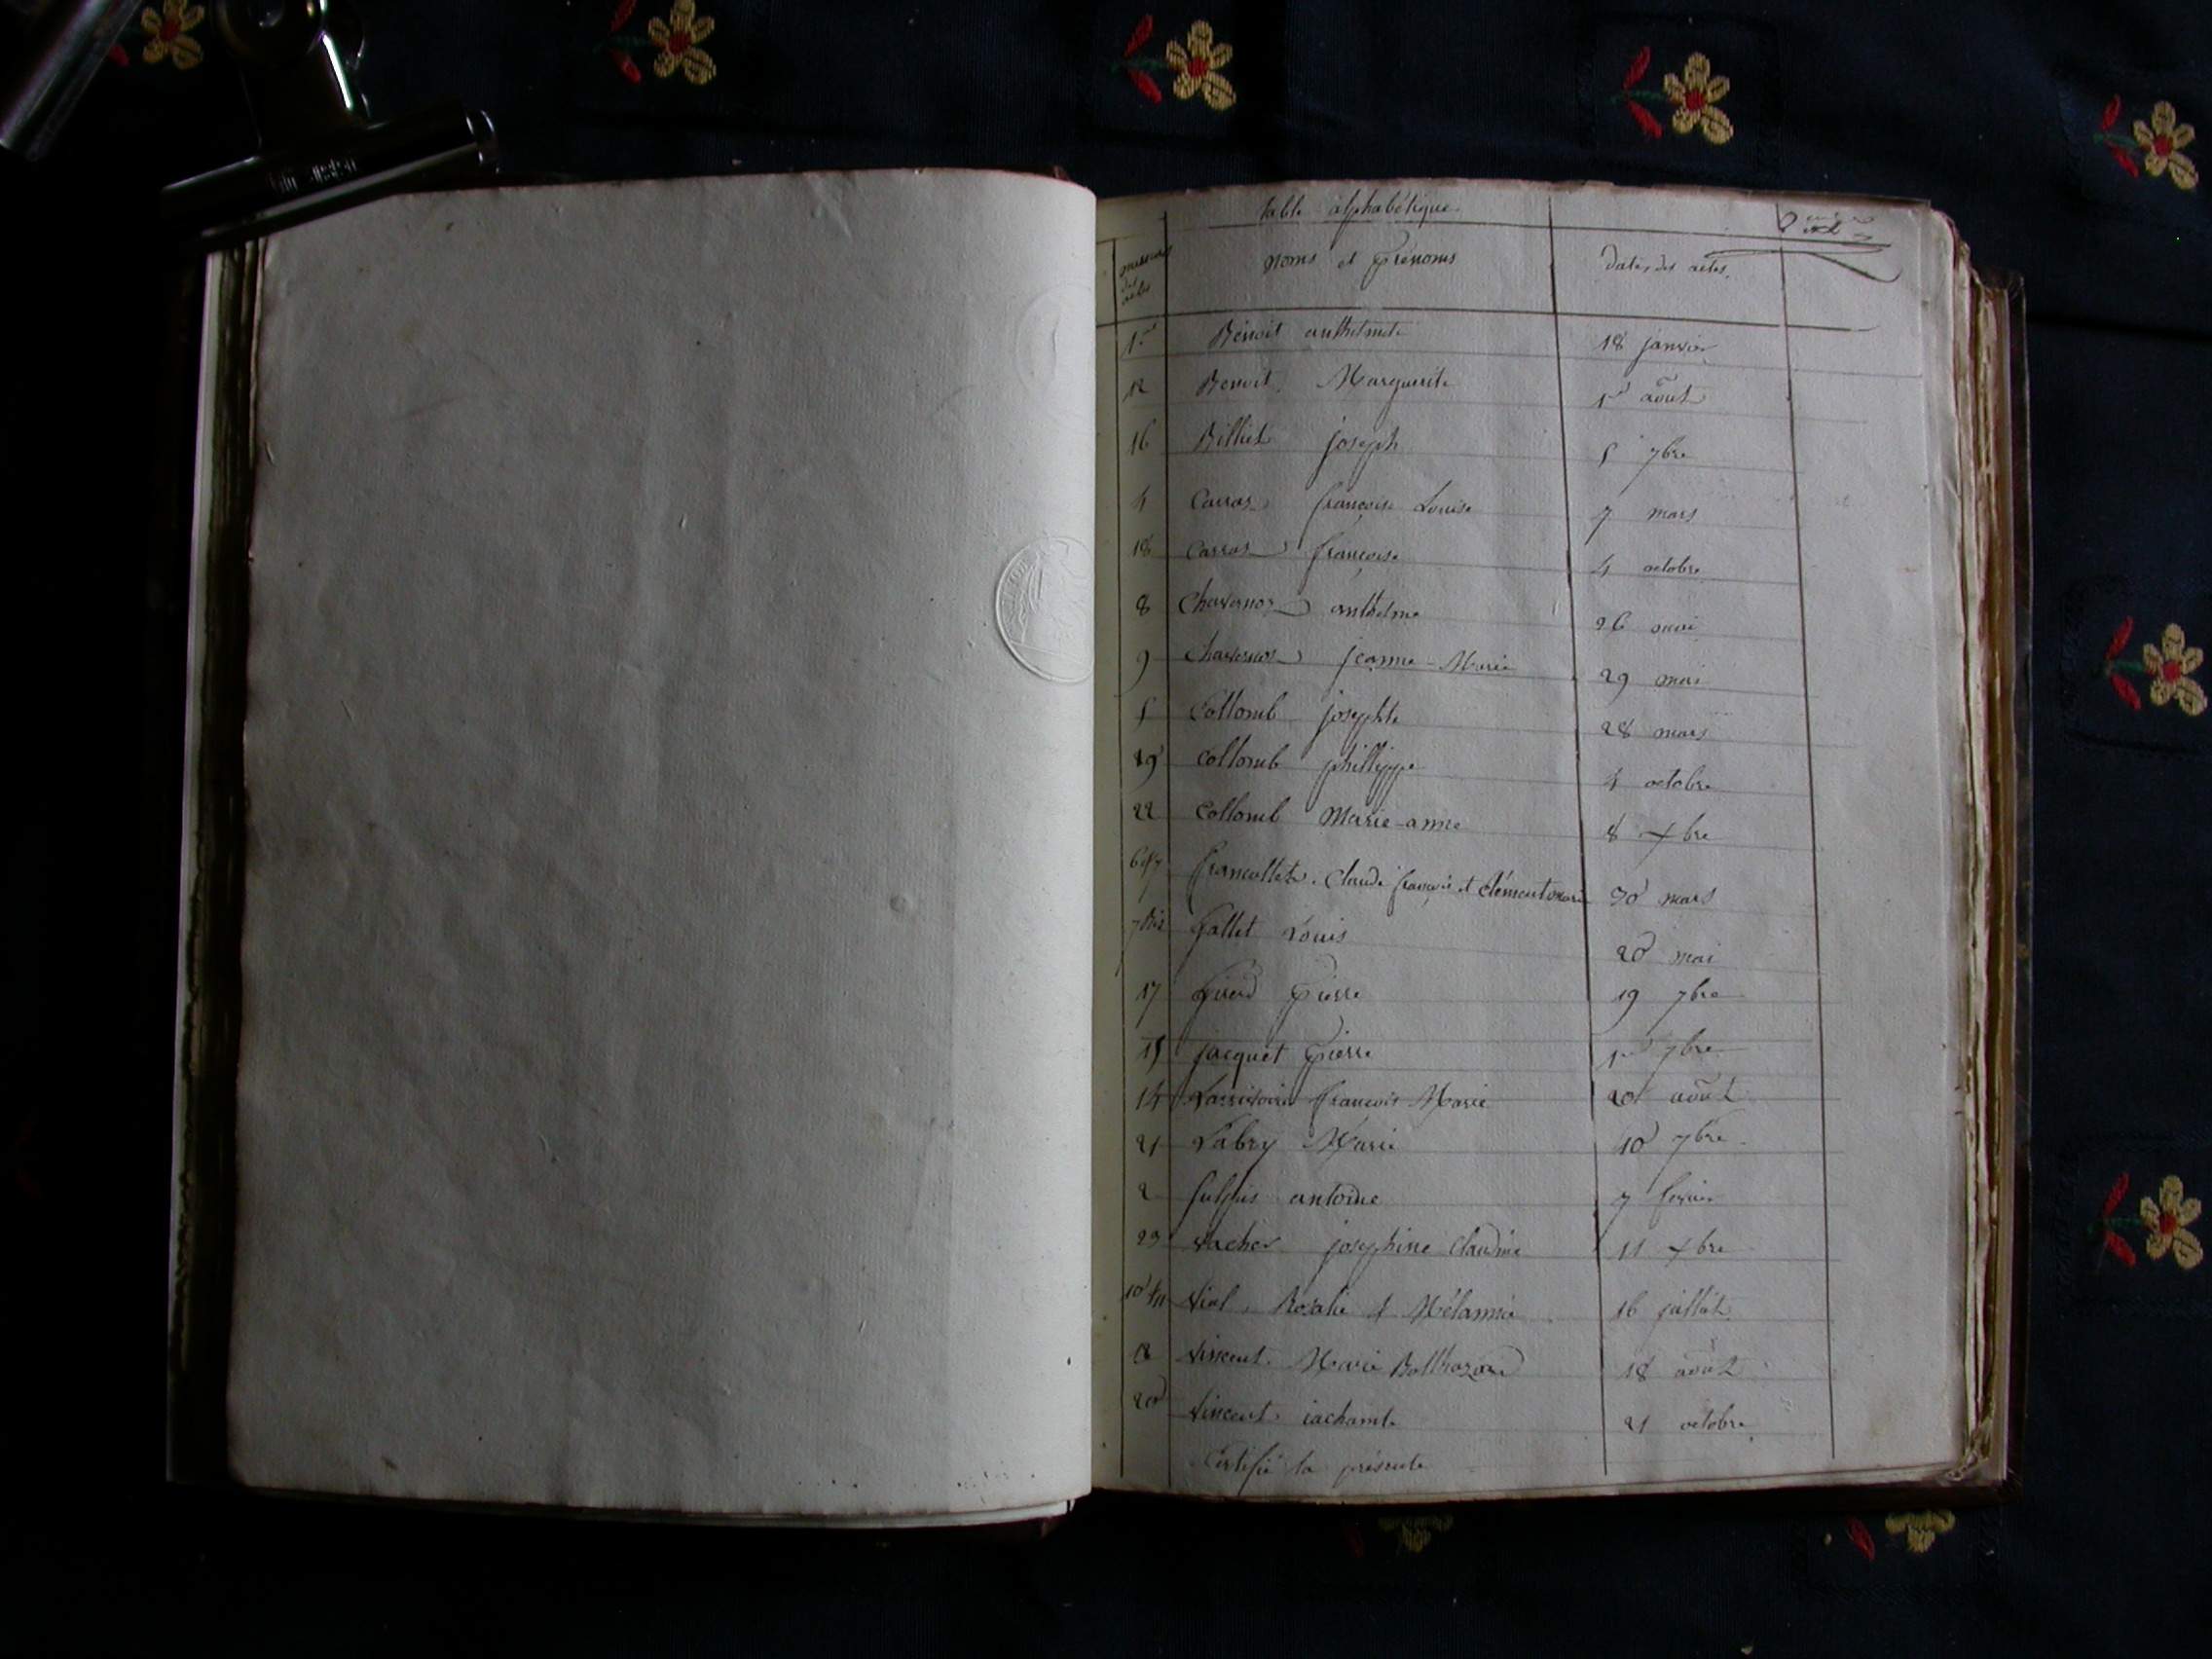 table alphabétique
numeros des actes noms et Prénoms dates des actes
1er Benoit anthelmete 18 janvier
12 Benoit Marguerite 1er août
16 Billiet joseph 5 7bre
4 Carraz françoise Louise 7 mars
18 Carraz françoise 4 octobre
8 Chavanoz anthelme 26 mai
9 Chavanoz jeanne-Marie 29 mai
5 Collomb josephte 28 mars
19 Collomb phillippe 4 octobre
22 Collomb Marie-anne 8 Xbre
6 et 7 francollet Claude françois et Clément 30 mars
7 bis Gallet Louis 20 mai
17 Girard Pierre 19 7bre
15 jacquet Pierre 1er 7bre
14 françois Marie 20 août
21 Labry Marie 10 7bre
2 antoine 7
23 Vacher josephine Claudine 11 Xbre
10 et 11 Vial Rosalie et Mélannie 16 juillet
13 Vincent Marie Balthazard 18 août
20 Vincent 21 octobre
Certifié la présente